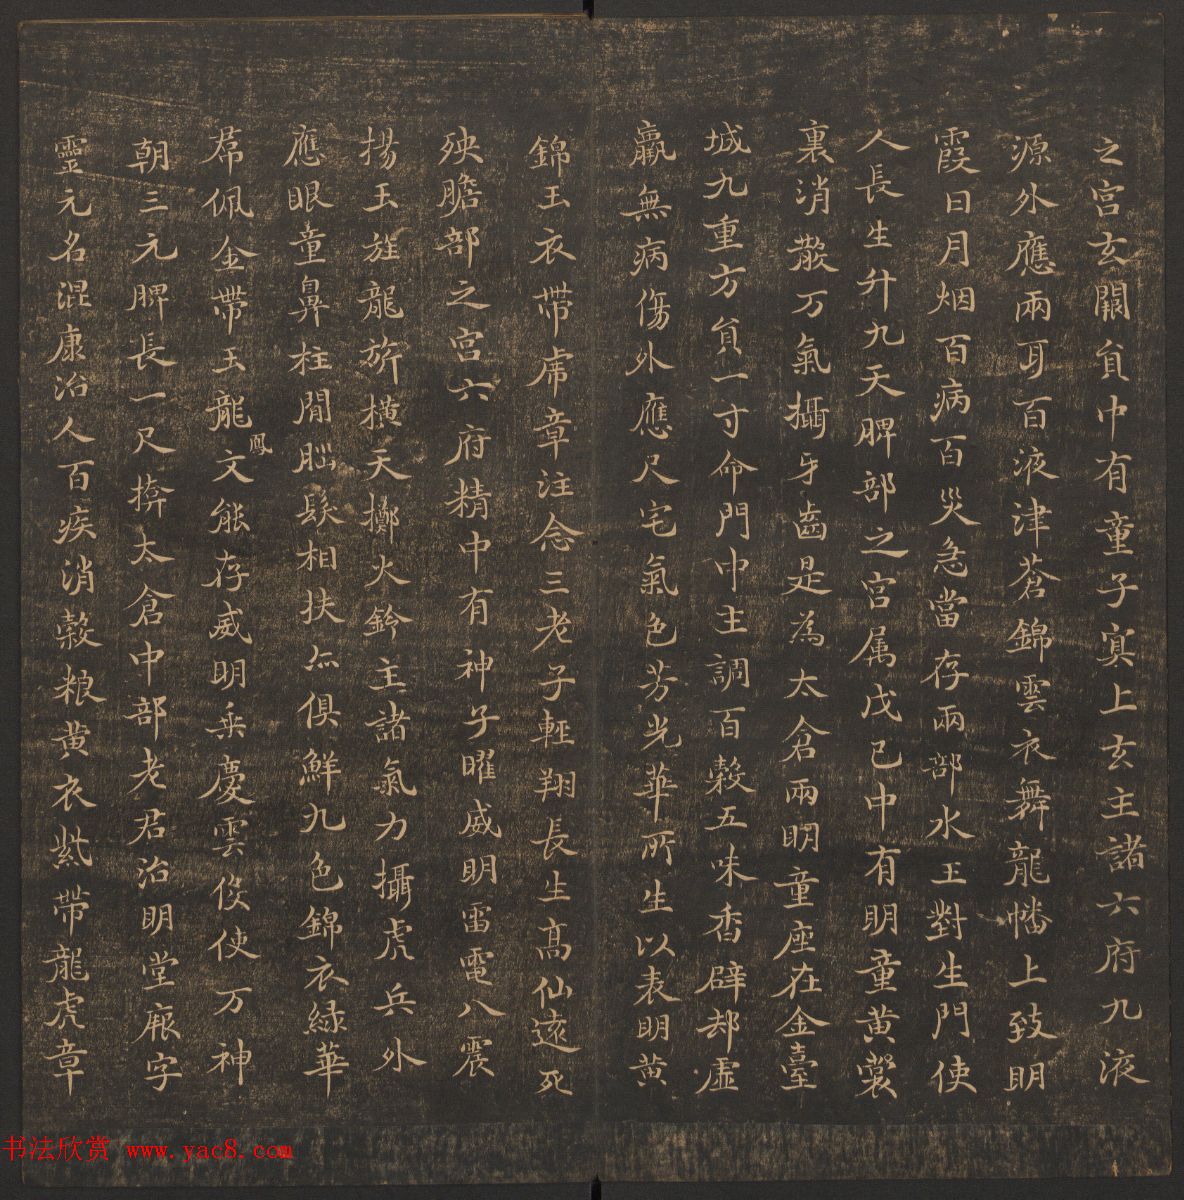 之宫玄關負中有童子冥上玄主諸六府九液
源外應兩耳百液津蒼錦雲衣舞龍幡上致明
霞日月烟百病百災急當存兩部水王對生門使
人長生升九天脾部之宫属戊己中有明童黄裳
裏消散万氣攝牙齒是為太倉兩明童座在金臺
城九重方負一寸命門中主調百穀五味香辟却虚
羸無病傷外應尺宅氣色芳光華所生以表明黄
錦玉衣帶虎章注念三老子輕翔長生高仙遠死
殃膽部之宫六府精中有神子曜威明雷電八震
揚玉旌龍旂横天擲火鈴主諸氣力攝虎兵外
應眼童鼻柱間腦髮相扶亦俱鮮九色錦衣緑華
帬佩金帶玉龍鳳文能存威明乘慶雲役使万神
朝三元脾長一尺揜太倉中部老君治明堂厭字
靈元名混康治人百疾消穀粮黄衣紫帶龍虎章
书法欣赏 www.yac8.com